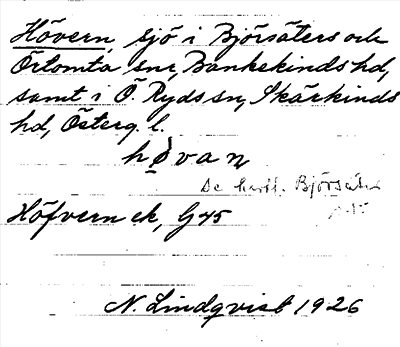 Hövern, sjö i Björsäters och
Örtomta snr, Bankekinds hd,
samt i Ö. Ryds sn, Skärkinds
hd, Österg. l.
høvan
Se Björsäter
Höfvern ek, G45
N. Lindqvist 1926